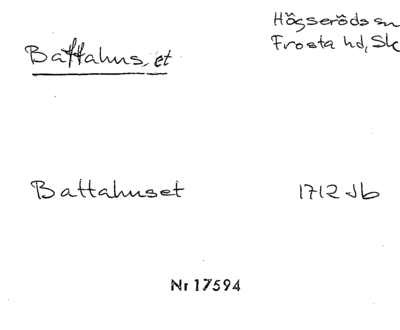 Battahus, et
Högseröds sn
Frosta hd, Sk
Battahuset 1712 Jb
Nr 17594